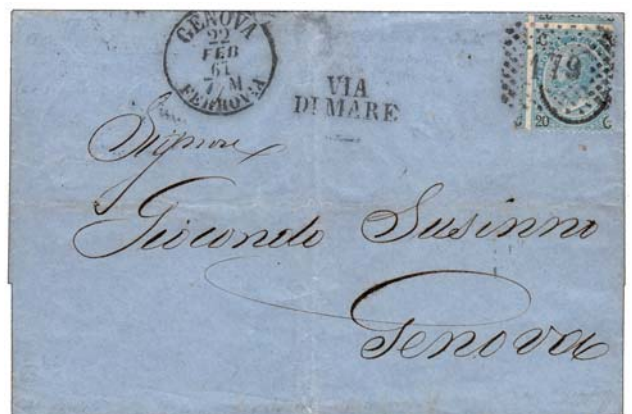 GENOVA
22
FEB
67
FERROVIA
VIA
DI MARE
19
20 C
Signore
Giocondo Susinno
Genova